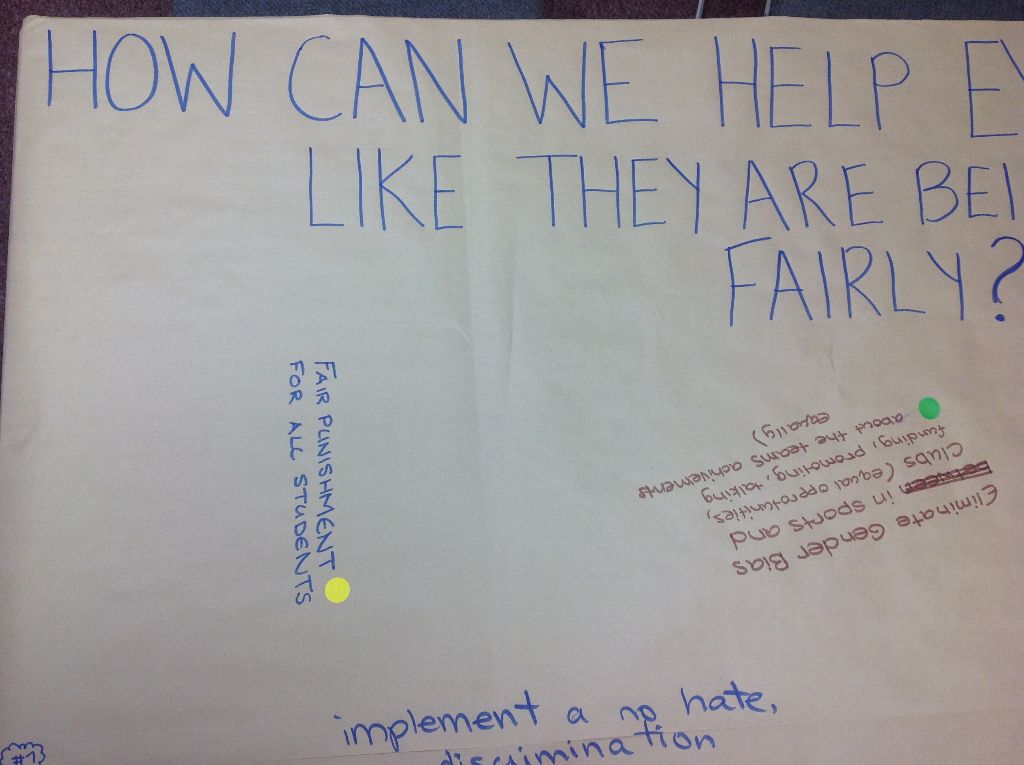 HOW CAN WE HELP
LIKE THEY ARE BEI
FAIRLY?
FAIR PUNISHMENT
FOR ALL STUDENTS
Eliminate Gender Bias
between in sports and
Clubs (equal opprotunities,
funding, promoting, talking
about the teams achivements
equally)
implement a no hate,
discrimination
#1